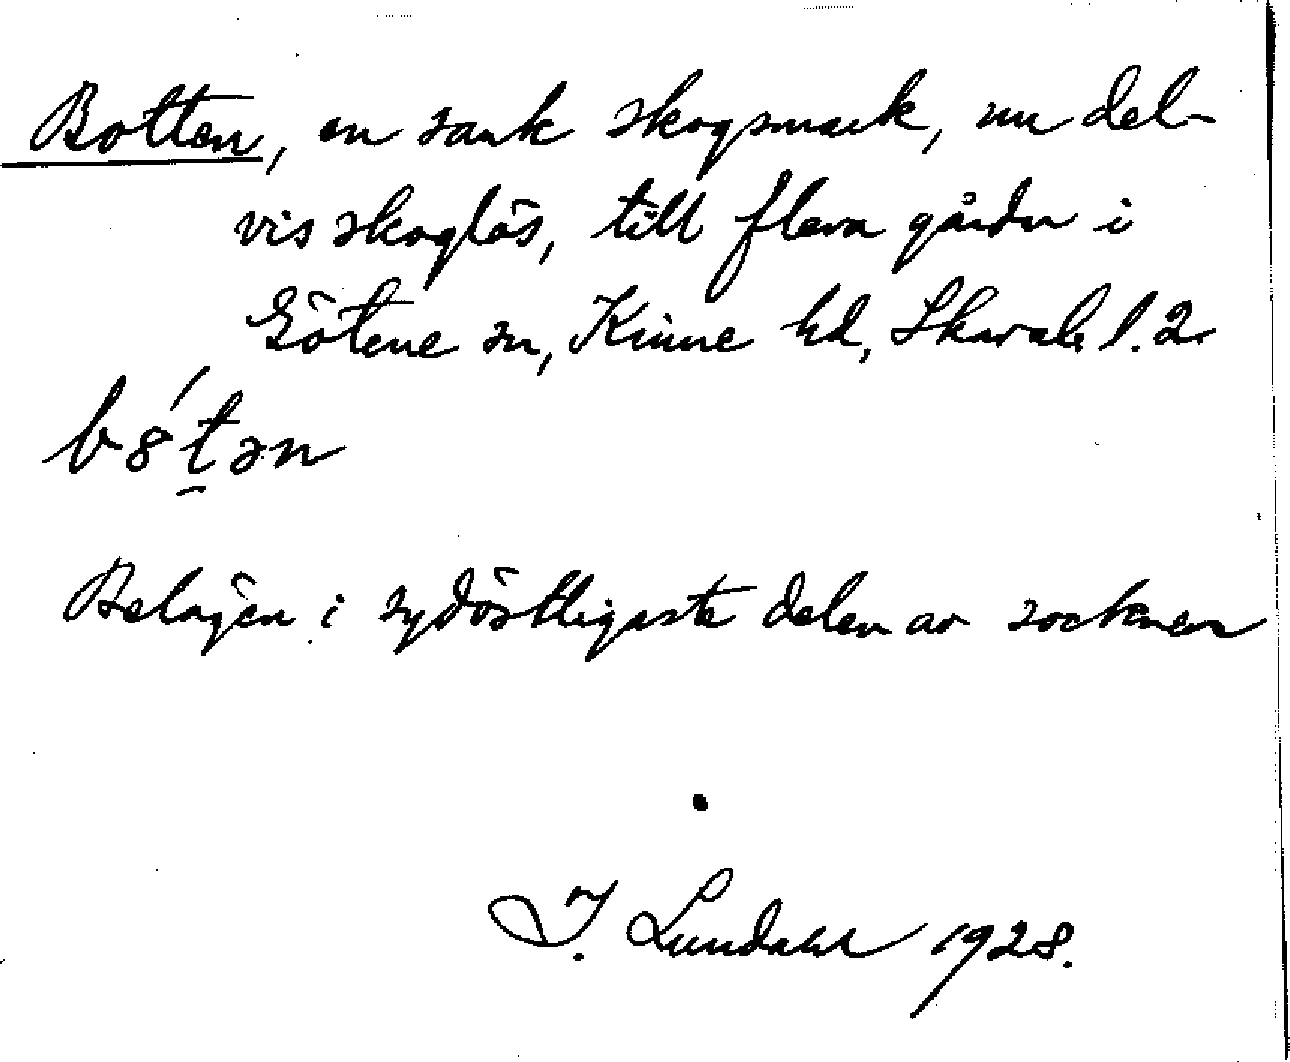 Botten, en sank skogsmark, nu del-
vis skoglös, till flera gårdar i
Götene sn, Kinne hd, Skarab. l. 2
b8´t̠ən
Belägen i sydöstligaste delen av socknen
I. Lundahl 1928.